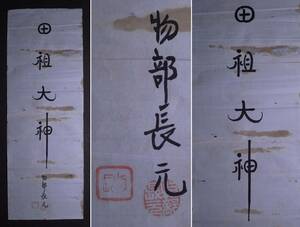 田祖大神
物部長元
物部長元
田祖大神